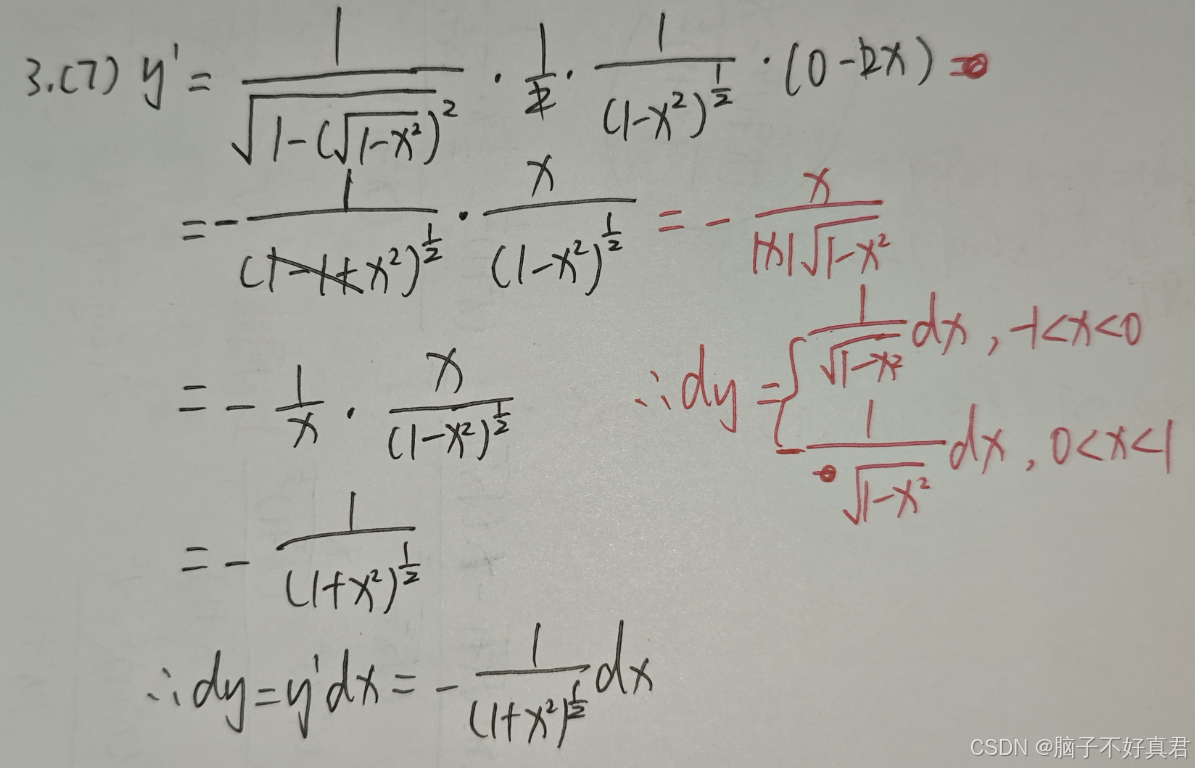 3.(7) y' = \frac{1}{\sqrt{1-(\sqrt{1-x^2})^2}} · \frac{1}{2} · \frac{1}{(1-x^2)^{\frac{1}{2}}} · (0-2x) =
= - \frac{1}{(1-1+x^2)^{\frac{1}{2}}} · \frac{x}{(1-x^2)^{\frac{1}{2}}} = - \frac{x}{|x|\sqrt{1-x^2}}
= - \frac{1}{x} · \frac{x}{(1-x^2)^{\frac{1}{2}}}
∴dy = { \frac{1}{\sqrt{1-x^2}} dx , -1<x<0
- \frac{1}{\sqrt{1-x^2}} dx , 0<x<1
= - \frac{1}{(1+x^2)^{\frac{1}{2}}}
∴dy=y'dx = - \frac{1}{(1+x^2)^{\frac{1}{2}}} dx
CSDN @脑子不好真君